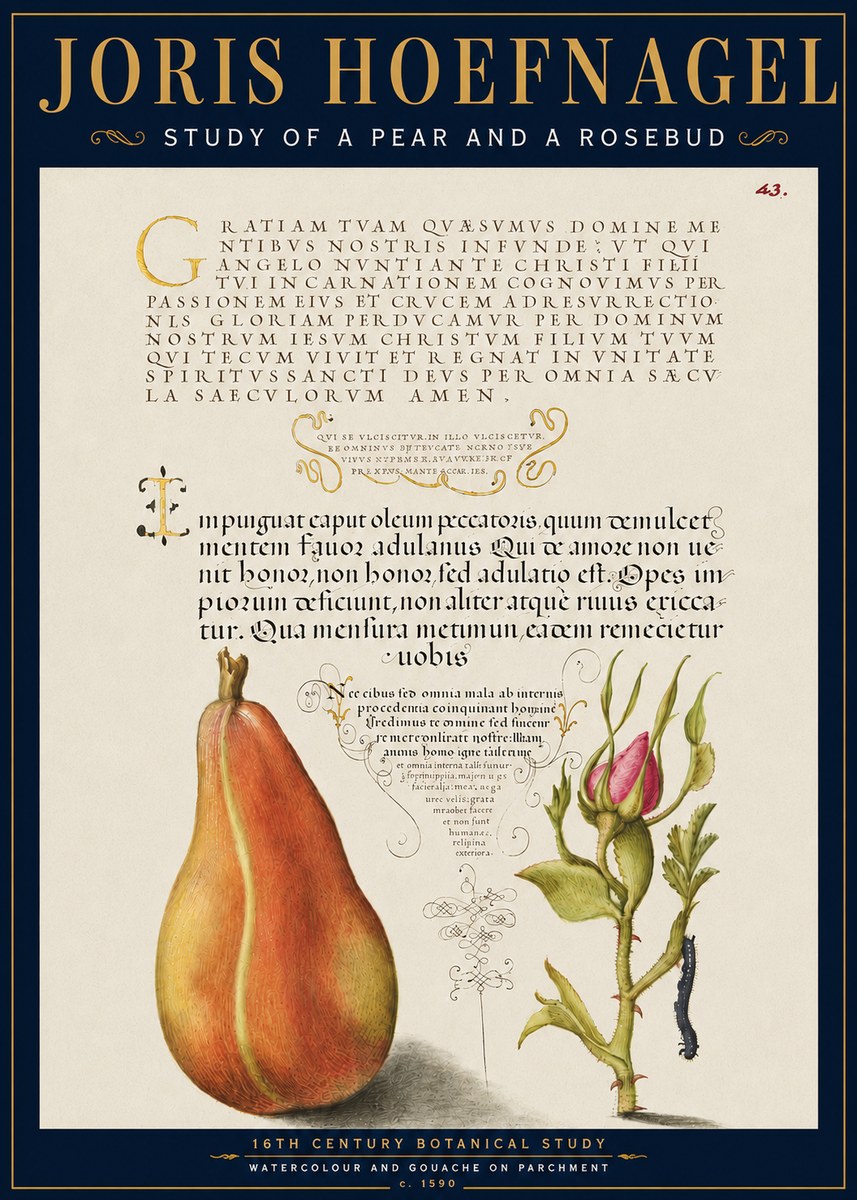 JORIS HOEFNAGEL
STUDY OF A PEAR AND A ROSEBUD
43.
GRATIAM TVAM QVÆSVMVS DOMINE ME
NTIBVS NOSTRIS INFVNDE: VT QVI
ANGELO NVNTIANTE CHRISTI FILII
TVI INCARNATIONEM COGNOVIMVS PER
PASSIONEM EIVS ET CRVCEM ADRESVRRECTIO-
NIS GLORIAM PERDVCAMVR PER DOMINVM
NOSTRVM IESVM CHRISTVM FILIVM TVVM
QVI TECVM VIVIT ET REGNAT IN VNITATE
SPIRITVSSANCTI DEVS PER OMNIA SÆCV
LA SAECVLORVM AMEN,
QVI SE VLCISCITVR. IN ILLO VLCISCETVR.
Impinguat caput oleum peccatoris, quum demulcet
mentem favor adulanus Qui de amore non ue-
nit honor, non honor, sed adulatio est. Opes im-
piorum deficiunt, non aliter atque riuus exicca-
tur. Qua mensura metimun, eadem remecietur
uobis
Nec cibus sed omnia mala ab internis
procedentia coinquinant homine
et omnia interna
urec velis: grata
mraobet facere
et non funt
humanæ,
religina
exteriora.
16TH CENTURY BOTANICAL STUDY
WATERCOLOUR AND GOUACHE ON PARCHMENT
c. 1590